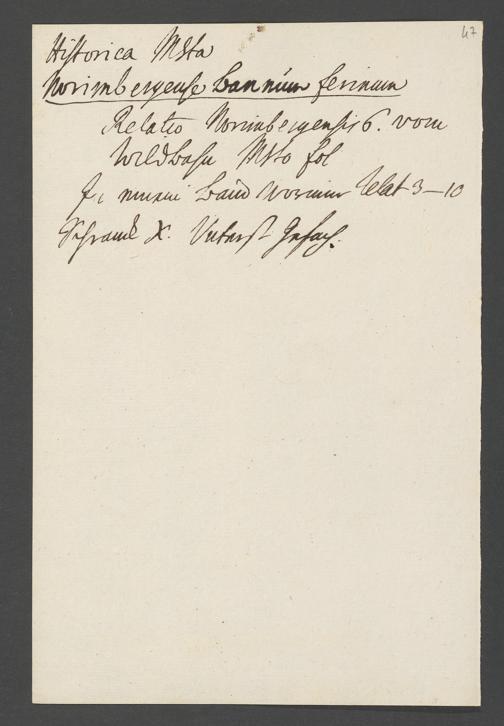 47
Historica Msta
Norimbergense bannum ferinum
Relatio Norimbergensis 6. vom
Wildbahn Msto fol
in einem Band worinn blat 3–10
Schrank X. Unterst Gefach.